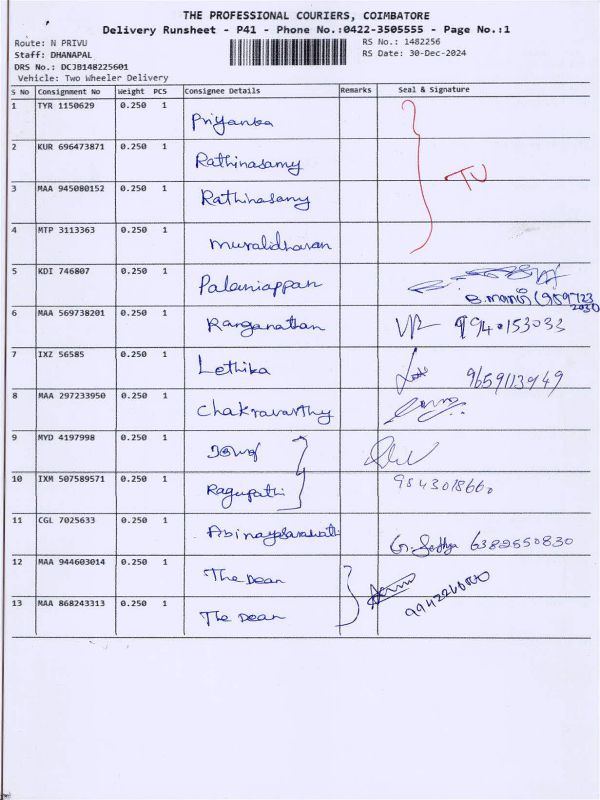 THE PROFESSIONAL COURIERS, COIMBATORE
Delivery Runsheet - P41 - Phone No.:0422-3505555 - Page No.:1
Route: N PRIVU
RS No.: 1482256
Staff: DHANAPAL
RS Date: 30-Dec-2024
DRS No.: DCJB148225601
Vehicle: Two Wheeler Delivery
S No Consignment No Weight PCS Consignee Details Remarks Seal & Signature
1 TYR 1150629 0.250 1 Priyanka
2 KUR 696473871 0.250 1 Rathinasamy
TU
3 MAA 945080152 0.250 1 Rathinasamy
4 MTP 3113363 0.250 1 Muralidharan
5 KDI 746807 0.250 1 Palaniappan
6 MAA 569738201 0.250 1 Ranganathan 9940153033
7 IXZ 56585 0.250 1 Lethika 9659113949
8 MAA 297233950 0.250 1 Chakravarthy
9 MYD 4197998 0.250 1
10 IXM 507589571 0.250 1 Ragupathi 9843018660
11 CGL 7025633 0.250 1 6382550830
12 MAA 944603014 0.250 1 The Dean
13 MAA 868243313 0.250 1 The Dean